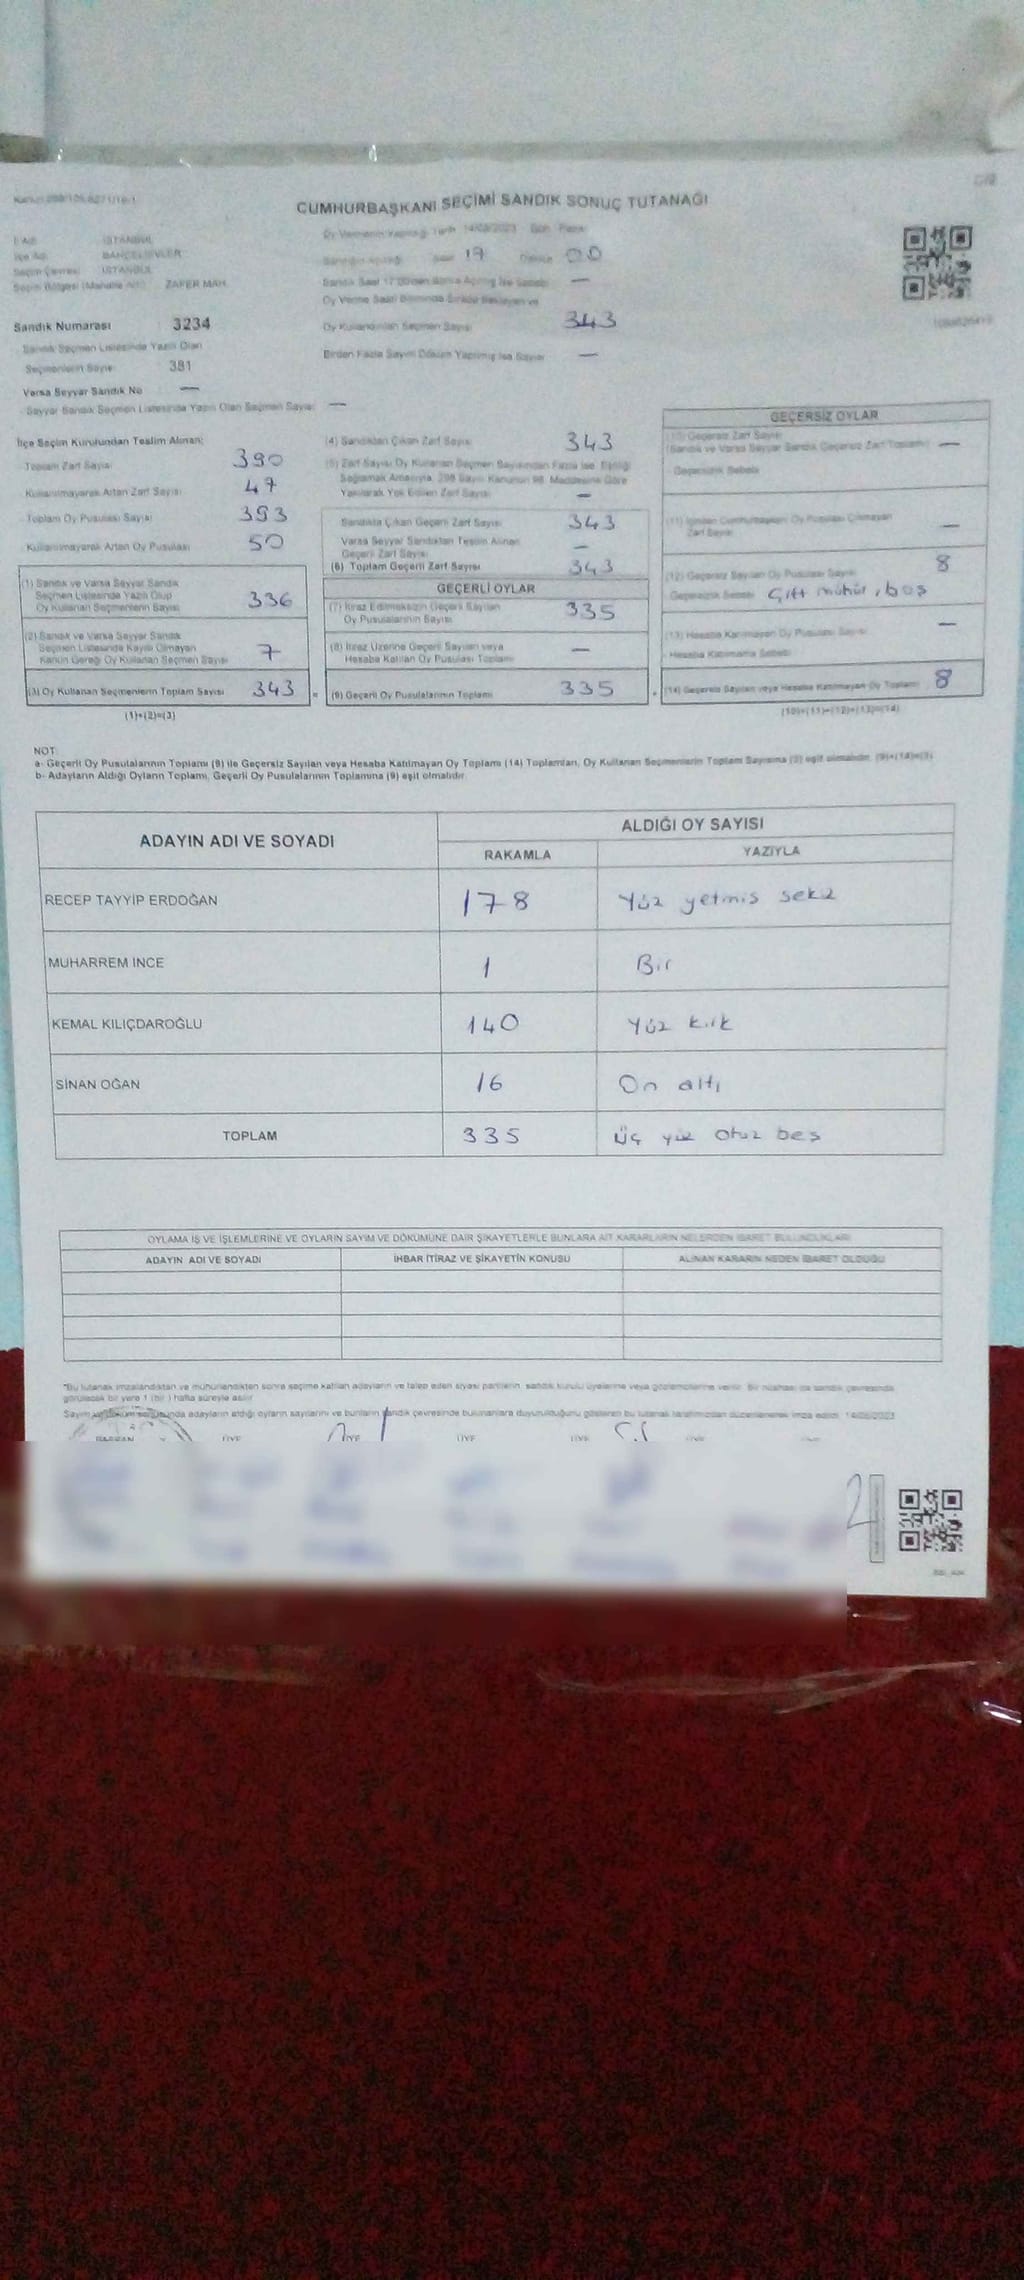 CUMHURBAŞKANI SEÇİMİ SANDIK SONUÇ TUTANAĞI
Oy Vermenin Yapıldığı Tarih 14/05/2023 Gün Pazar
İSTANBUL
BAHÇELİEVLER
Seçim Çevresi İSTANBUL
Seçim Bölgesi (Mahalle Adı) ZAFER MAH.
Saat 17 Dakika 00
Oy Kullandırılan Seçmen Sayısı 343
Birden Fazla Sayım Döküm Yapılmış İse Sayısı —
Sandık Numarası 3234
Sandık Seçmen Listesinde Yazılı Olan
Seçmenlerin Sayısı 381
Varsa Seyyar Sandık No —
Seyyar Sandık Seçmen Listesinde Yazılı Olan Seçmen Sayısı —
İlçe Seçim Kurulundan Teslim Alınan:
Toplam Zarf Sayısı 390
Kullanılmayarak Artan Zarf Sayısı 47
Toplam Oy Pusulası Sayısı 393
Kullanılmayarak Artan Oy Pusulası 50
(1) Sandık ve Varsa Seyyar Sandık
Seçmen Listesinde Yazılı Olup
Oy Kullanan Seçmenlerin Sayısı 336
(2) Sandık ve Varsa Seyyar Sandık
Seçmen Listesinde Kayıtlı Olmayan
Kanun Gereği Oy Kullanan Seçmen Sayısı 7
(3) Oy Kullanan Seçmenlerin Toplam Sayısı 343 =
(1)+(2)=(3)
(4) Sandıktan Çıkan Zarf Sayısı 343
(5) Zarf Sayısı Oy Kullanan Seçmen Sayısından Fazla İse, Eşitliği
Sağlamak Amacıyla, 298 Sayılı Kanunun 98. Maddesine Göre
Yakılarak Yok Edilen Zarf Sayısı —
Sandıkta Çıkan Geçerli Zarf Sayısı 343
Varsa Seyyar Sandıktan Teslim Alınan
Geçerli Zarf Sayısı —
(6) Toplam Geçerli Zarf Sayısı 343
GEÇERLİ OYLAR
(7) İtiraz Edilmeksizin Geçerli Sayılan
Oy Pusulalarının Sayısı 335
(8) İtiraz Üzerine Geçerli Sayılan veya
Hesaba Katılan Oy Pusulası Toplamı —
(9) Geçerli Oy Pusulalarının Toplamı 335
GEÇERSİZ OYLAR
(10) Geçersiz Zarf Sayısı
(Sandık ve Varsa Seyyar Sandık Geçersiz Zarf Toplamı) —
Geçersizlik Sebebi
Zarf Sayısı —
(12) Geçersiz Sayılan Oy Pusulası Sayısı 8
Geçersizlik Sebebi Çift mühür, boş
(13) Hesaba Katılmayan Oy Pusulası Sayısı —
Hesaba Katılmama Sebebi
(14) Geçersiz Sayılan veya Hesaba Katılmayan Oy Toplamı 8
(10)+(11)+(12)+(13)=(14)
NOT:
a- Geçerli Oy Pusulalarının Toplamı (9) ile Geçersiz Sayılan veya Hesaba Katılmayan Oy Toplamı (14) Toplamları, Oy Kullanan Seçmenlerin Toplam Sayısına (3) eşit olmalıdır. (9)+(14)=(3)
b- Adayların Aldığı Oyların Toplamı, Geçerli Oy Pusulalarının Toplamına (9) eşit olmalıdır.
ADAYIN ADI VE SOYADI
ALDIĞI OY SAYISI
RAKAMLA YAZIYLA
RECEP TAYYİP ERDOĞAN 178 Yüz yetmis sekiz
MUHARREM İNCE 1 Bir
KEMAL KILIÇDAROĞLU 140 Yüz kırk
SİNAN OĞAN 16 On altı
TOPLAM 335 üç yüz otuz beş
OYLAMA İŞ VE İŞLEMLERİNE VE OYLARIN SAYIM VE DÖKÜMÜNE DAİR ŞİKAYETLERLE BUNLARA AİT KARARLARIN NELERDEN İBARET BULUNDUKLARI
ADAYIN ADI VE SOYADI İHBAR İTİRAZ VE ŞİKAYETİN KONUSU ALINAN KARARIN NEDEN İBARET OLDUĞU
*Bu tutanak imzalandıktan ve mühürlendikten sonra seçime katılan adayların ve talep eden siyasi partilerin, sandık kurulu üyelerine veya gözlemcilerine verilir. Bir nüshası da sandık çevresinde
görülecek bir yere 1 (bir) hafta süreyle asılır.
BAŞKAN ÜYE ÜYE ÜYE ÜYE